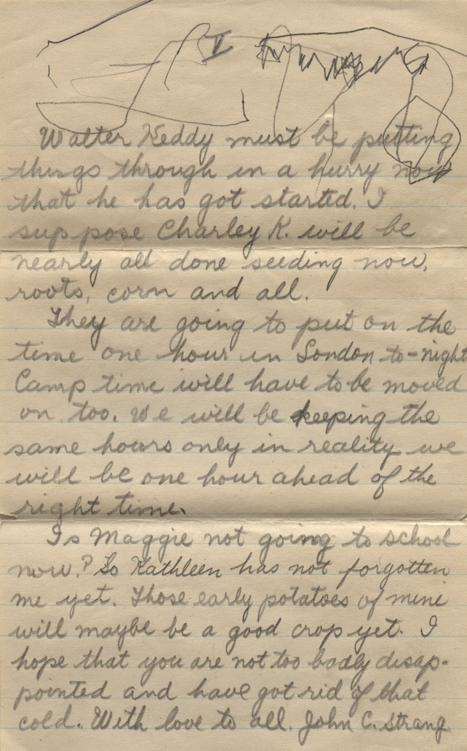 V
Walter Keddy must be putting
things through in a hurry now
that he has got started. I
suppose Charley K. will be
nearly all done seeding now,
roots, corn and all.
They are going to put on the
time one hour in London to-night
Camp time will have to be moved
on too. We will be keeping the
same hours only in reality we
will be one hour ahead of the
right time.
Is Maggie not going to school
now? So Kathleen has not forgotten
me yet. Those early potatoes of mine
will maybe be a good crop yet. I
hope that you are not too badly disap-
pointed and have got rid of that
cold. With love to all. John C. Strang